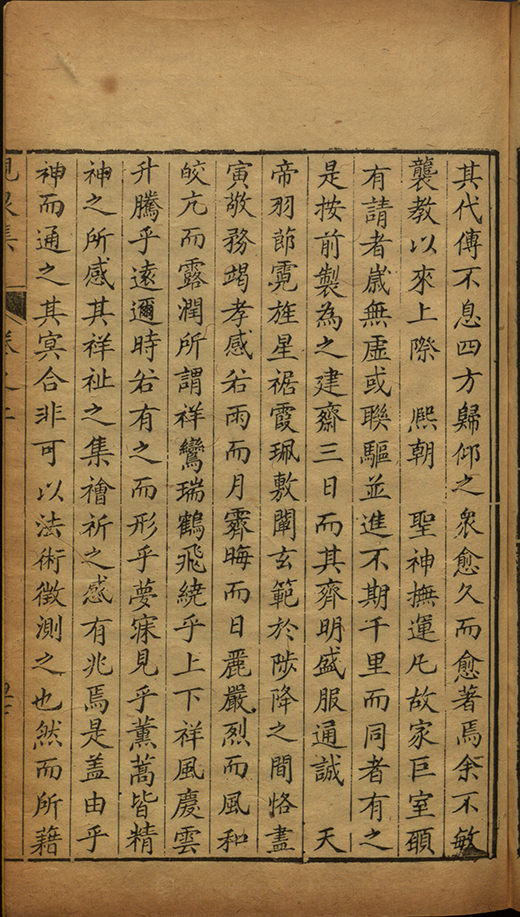 其代傳不息四方歸仰之衆愈久而愈著焉余不敏
襲教以來上際　熈朝　聖神撫運凢故家巨室頤
有請者嵗無虚或聯驅並進不期千里而同者有之
是按前製為之建齋三日而其齊明盛服通誠　天
帝羽節霓旌星裾霞珮敷闡玄範於陟降之間恪盡
寅敬務竭孝感若雨而月霽晦而日麗嚴烈而風和
皎亢而露潤所謂祥鸞瑞鶴飛繞乎上下祥風慶雲
升騰乎遠邇時若有之而形乎夢寐見乎薰蒿皆精
神之所感其祥祉之集禬祈之感有兆焉是盖由乎
神而通之其冥合非可以法術徴測之也然而所籍
峴泉集　卷之二